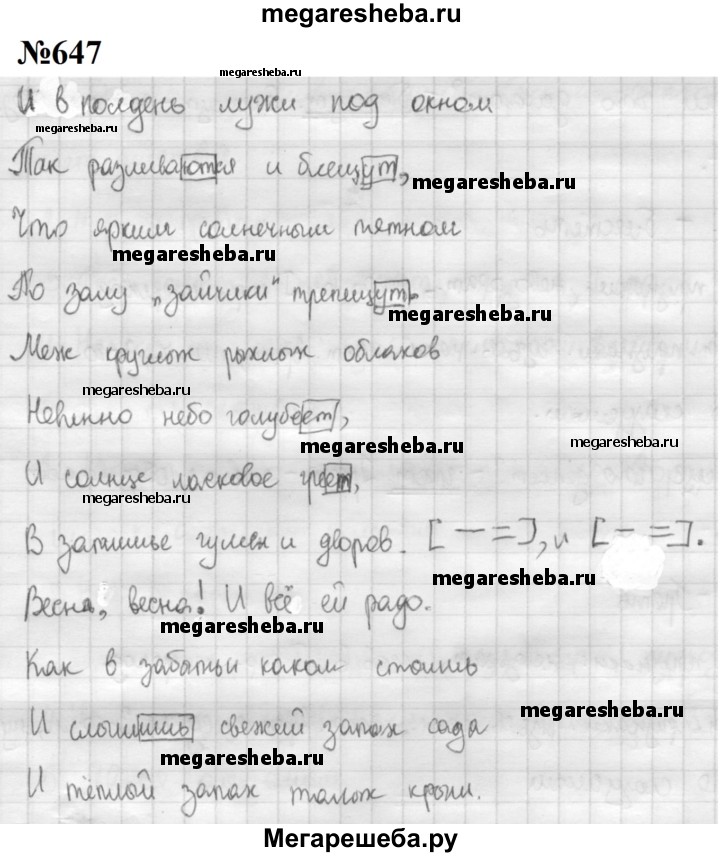 megaresheba.ru
№647
megaresheba.ru
И в полдень лужи под окном
megaresheba.ru
Так разливаются и блещут,
megaresheba.ru
Что ярким солнечным пятном
megaresheba.ru
По залу „зайчики" трепещут.
megaresheba.ru
Меж круглых рыхлых облаков
megaresheba.ru
Невинно небо голубеет,
megaresheba.ru
megaresheba.ru
И солнце ласковое греет,
megaresheba.ru
В затишье гумен и дворов. [— =], и [— =].
megaresheba.ru
Весна, весна! И всё ей радо.
megaresheba.ru
Как в забытьи каком стоишь
megaresheba.ru
И слышишь свежий запах сада
megaresheba.ru
И тёплый запах талых крыш.
Мегарешеба.ру